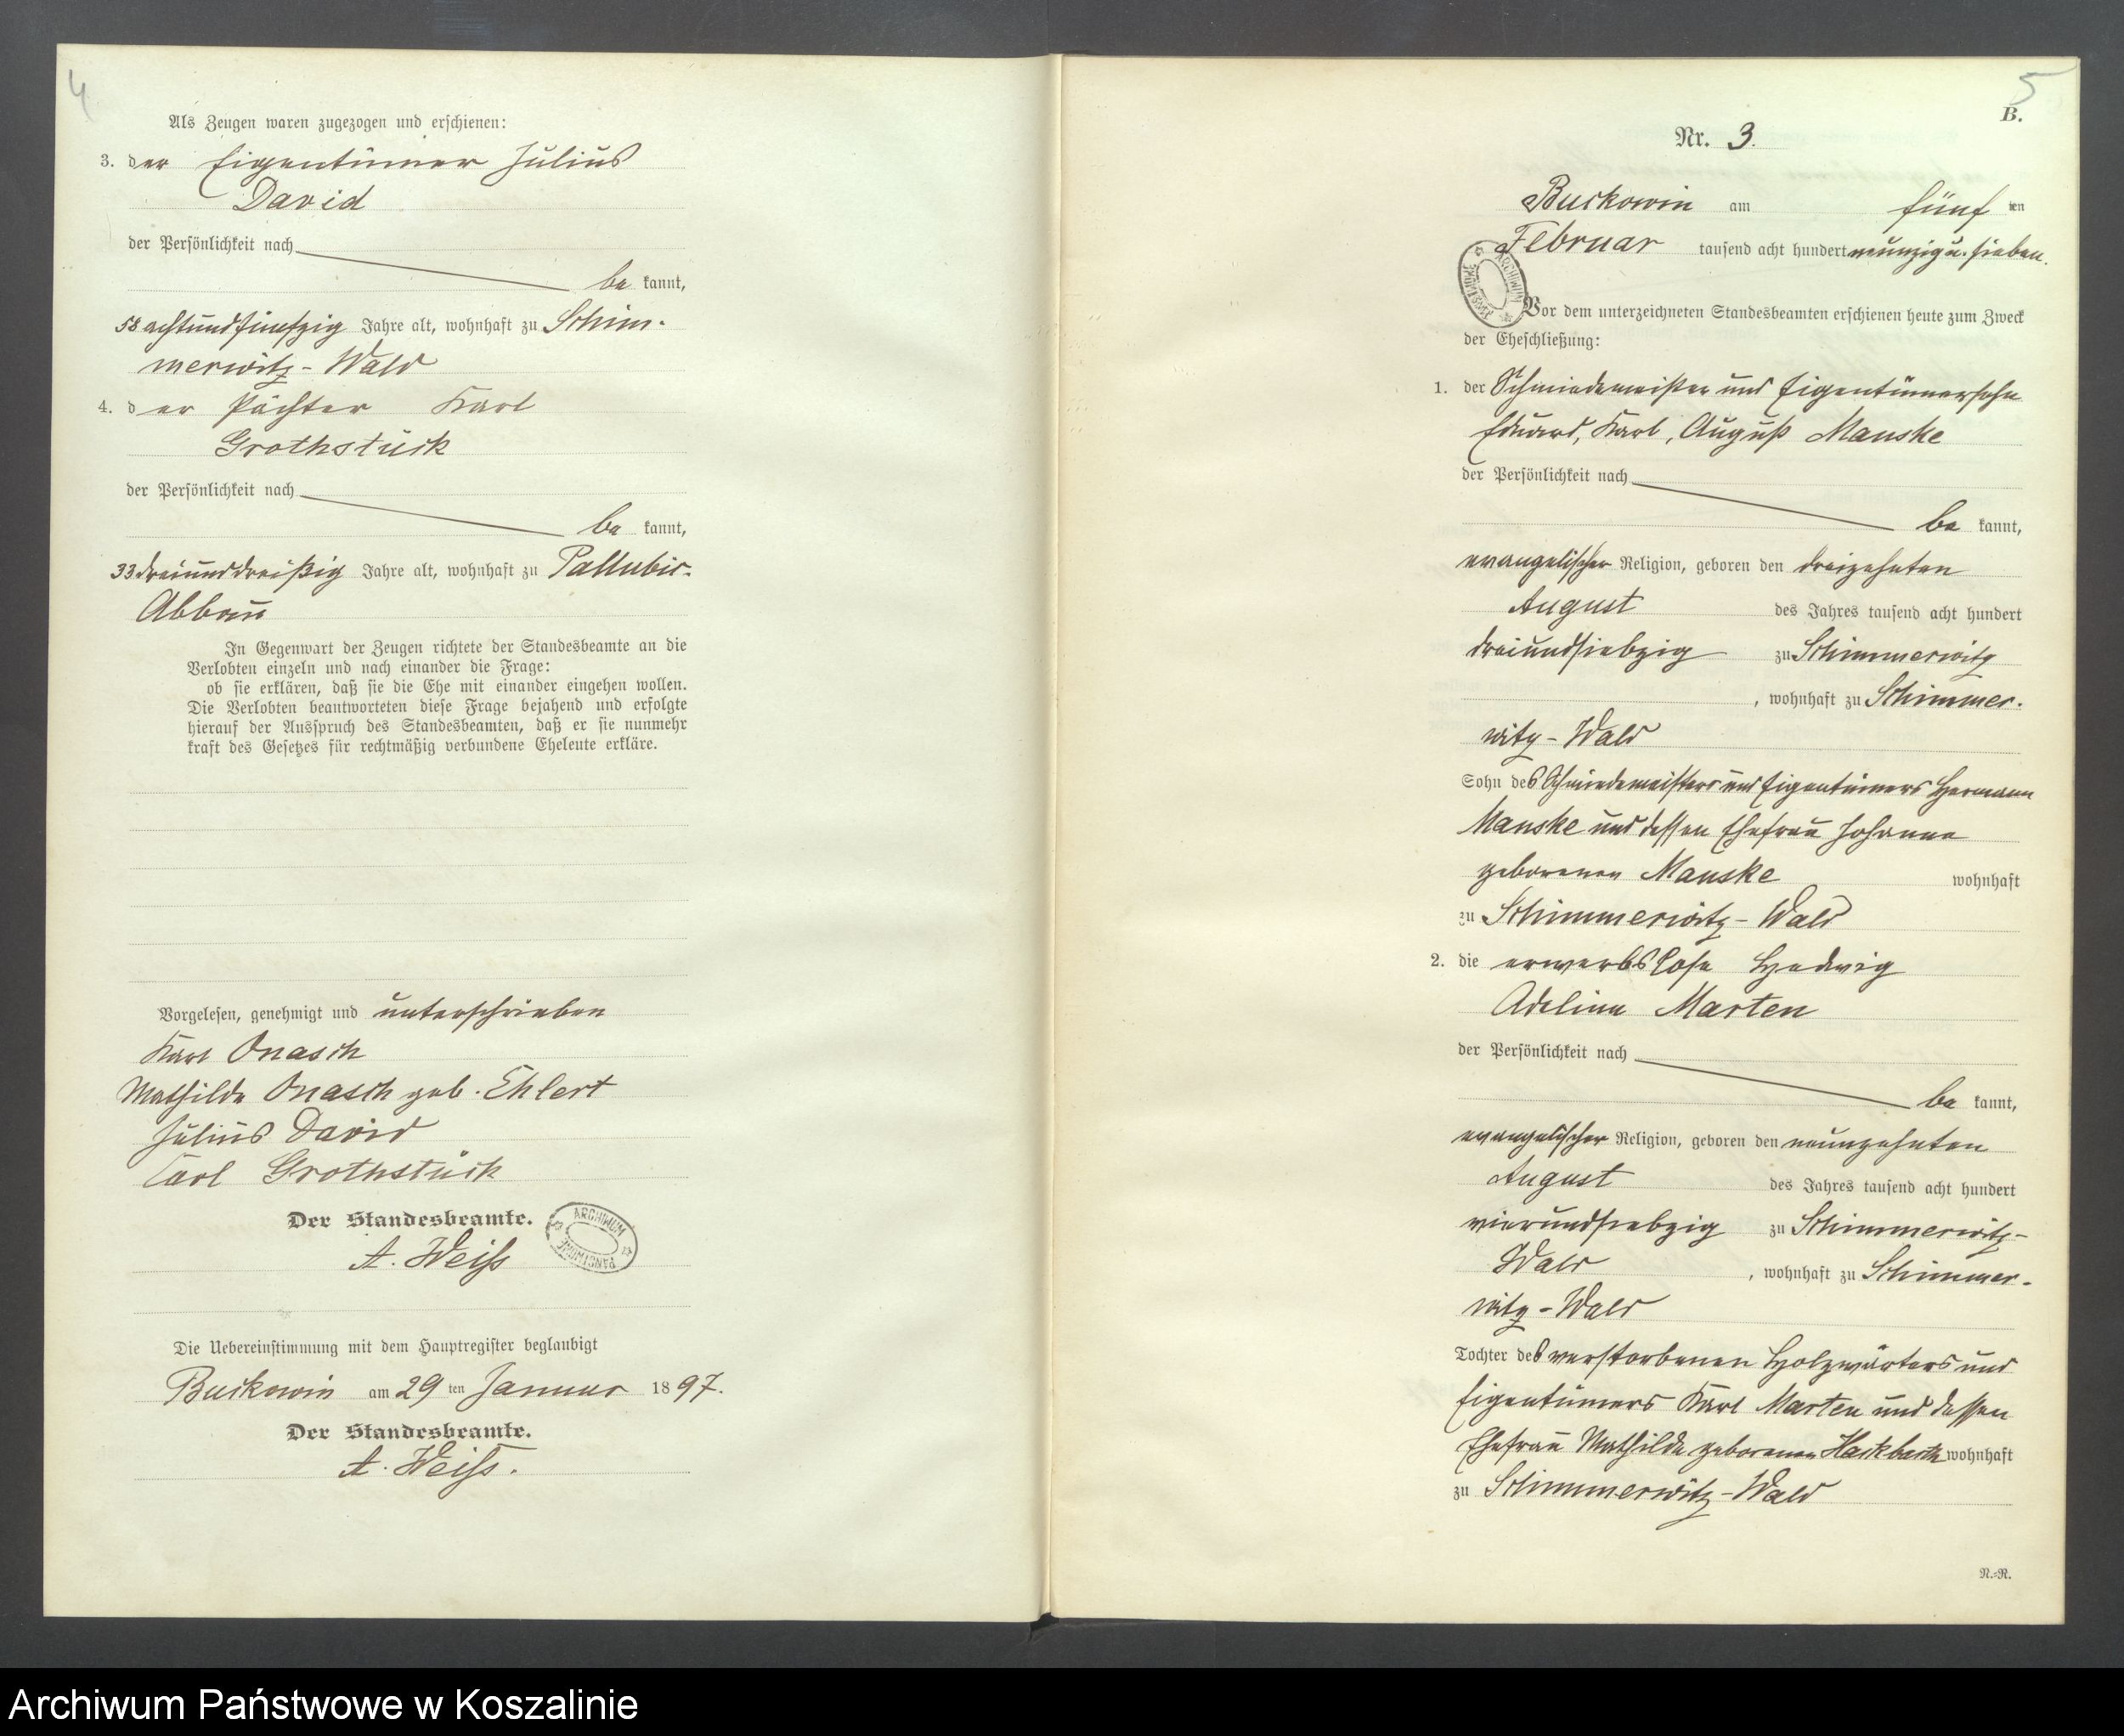 4
Als Zeugen waren zugezogen und erschienen:
3. der Eigentümer Julius
David
der Persönlichkeit nach
be kannt,
58 achtundfünfzig Jahre alt, wohnhaft zu Schim-
merwitz - Wald
4. der Pächter Karl
Grothstück
der Persönlichkeit nach
be kannt,
33 dreiunddreißig Jahre alt, wohnhaft zu Pallubic-
Abbau
In Gegenwart der Zeugen richtete der Standesbeamte an die
Verlobten einzeln und nach einander die Frage:
ob sie erklären, daß sie die Ehe mit einander eingehen wollen.
Die Verlobten beantworteten diese Frage bejahend und erfolgte
hierauf der Ausspruch des Standesbeamten, daß er sie nunmehr
kraft des Gesetzes für rechtmäßig verbundene Eheleute erkläre.
Vorgelesen, genehmigt und unterschrieben
Karl Onasch
Mathilde Onasch geb. Ehlert
Julius David
Carl Grothstück
Der Standesbeamte.
A. Weiß
ARCHIWUM PAŃSTWOWE
Die Uebereinstimmung mit dem Hauptregister beglaubigt
Buckowin am 29 ten Januar 1897.
Der Standesbeamte.
A. Weiß.
5
B.
Nr. 3.
Buckowin am fünf ten
Februar tausend acht hundert neunzig u. sieben.
ARCHIWUM PAŃSTWOWE
Vor dem unterzeichneten Standesbeamten erschienen heute zum Zweck
der Eheschließung:
1. der Schmiedemeister und Eigentümersohn
Eduard, Karl, August Manske
der Persönlichkeit nach
be kannt,
evangelischer Religion, geboren den dreizehnten
August des Jahres tausend acht hundert
dreiundsiebzig zu Schimmerwitz
, wohnhaft zu Schimmer-
witz - Wald
Sohn des Schmiedemeisters und Eigentümers Hermann
Manske und dessen Ehefrau Johanne
geborenen Manske wohnhaft
zu Schimmerwitz - Wald
2. die erwerbslose Hedwig
Adeline Marten
der Persönlichkeit nach
be kannt,
evangelischer Religion, geboren den neunzehnten
August des Jahres tausend acht hundert
vierundsiebzig zu Schimmerwitz-
Wald , wohnhaft zu Schimmer-
witz - Wald
Tochter des verstorbenen Holzwärters und
Eigentümers Karl Marten und dessen
Ehefrau Mathilde geborenen Hackbarth wohnhaft
zu Schimmerwitz - Wald
N.-R.
Archiwum Państwowe w Koszalinie